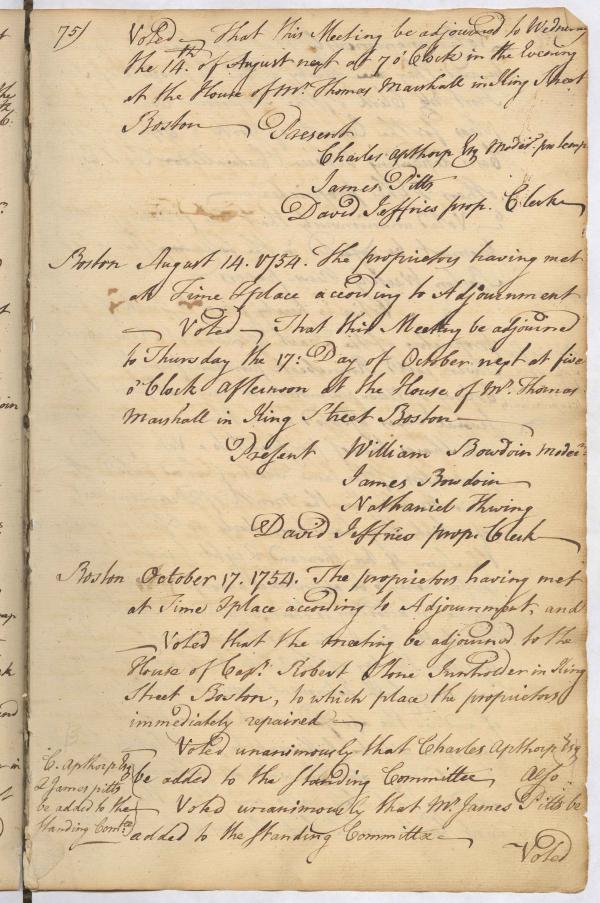 75)
Voted — That this Meeting be adjourned to Wednesday
the 14th. of August next at 7 o'Clock in the Evening
at the House of Mr. Thomas Marshall in King Street
Boston — Present
Charles Apthorp Esq Moder. pro temp
James Pitts
David Jeffries prop. Clerk
Boston August 14. 1754. The proprietors having met
at Time & place according to Adjournment
— Voted — That this Meeting be adjourned
to Thursday the 17: Day of October next at five
o'Clock afternoon at the House of Mr. Thomas
Marshall in King Street Boston —
Present William Bowdoin Moder.
James Bowdoin
Nathaniel Thwing
David Jeffries prop. Clerk
Boston October 17. 1754. The proprietors having met
at Time & place according to Adjournment, and
Voted that the meeting be adjourned to the
House of Capt. Robert Stone Innholder in King
Street Boston, to which place the proprietors
immediately repaired —
Voted unanimously that Charles Apthorp Esq
be added to the Standing Committee Also
Voted unanimously that Mr. James Pitts be
added to the Standing Committee —
C. Apthorp Esq
& James pitts
be added to the
Standing Comtee
Voted